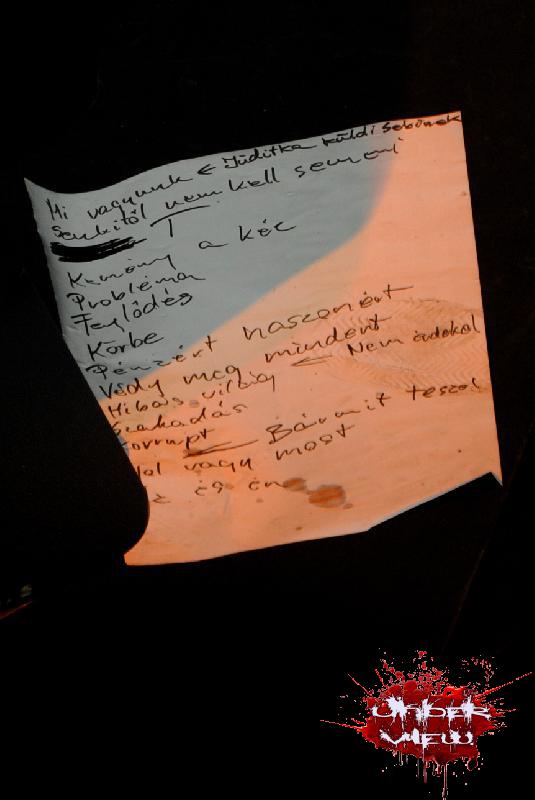 Mi vagyunk ← Juditka küldi Sebinek
Senkitől nem kell semmi
Kemény a kéc
Probléma
Fejlődés
Körbe
Pénzért haszonért
Védj meg mindent
Hibás világ ← Nem érdekel
Szakadás
Korrupt ← Bármit teszel
Hol vagy most
és én
UNDER
VIEW